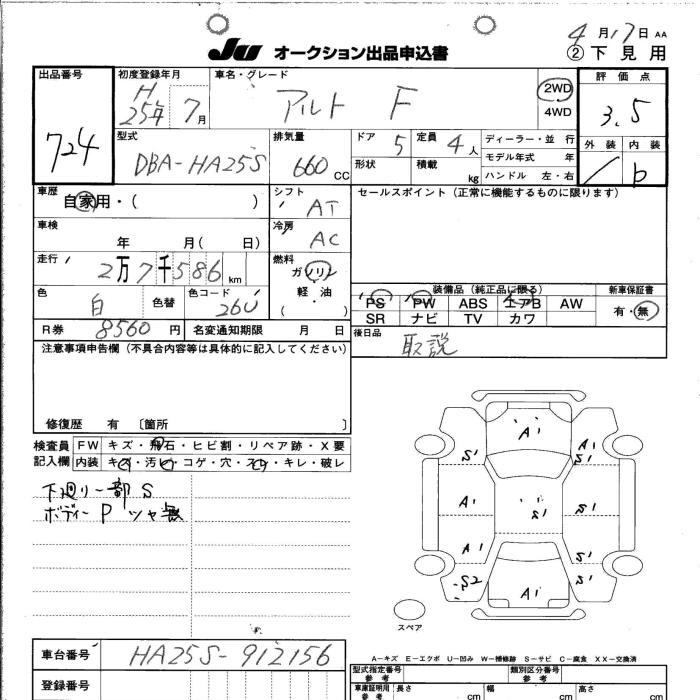 4月17日 AA
JU オークション出品申込書 ②下見用
出品番号 初度登録年月 車名・グレード 評価点
724 H25年 7月 アルト F 2WD 4WD 3.5
型式 排気量 ドア 5 定員 4人 ディーラー・並行 外装 内装
DBA-HA25S 660 CC 形状 積載 kg モデル年式 年 b
ハンドル 左・右
車歴 シフト セールスポイント(正常に機能するものに限ります)
自家用・( ) AT
車検 冷房
年 月( 日) AC
走行 燃料
2万7千586 km ガソリン
軽油
( )
装備品(純正品に限る) 新車保証書
色 白 色替 色コード 26U PS PW ABS エアB AW 有・無
SR ナビ TV カワ
R券 8560円 名変通知期限 月 日 後日品
取説
注意事項申告欄(不具合内容等は具体的に記入してください)
修復歴 有 〔箇所 〕
検査員 FW キズ・飛石・ヒビ割・リペア跡・X要
記入欄 内装 キズ・汚レ・コゲ・穴・スレ・キレ・破レ
下廻り一部S
ボディーP ツヤ無
A1
S1 A1 S1
A1 S1 S1
A1 S1
S2 A1 S1
スペア
A-キズ E-エクボ U-凹み W-補修跡 S-サビ C-腐食 XX-交換済
車台番号 HA25S-912156
登録番号
型式指定番号 参考 類別区分番号 参考
車庫証明用 参考 長さ cm 幅 cm 高さ cm